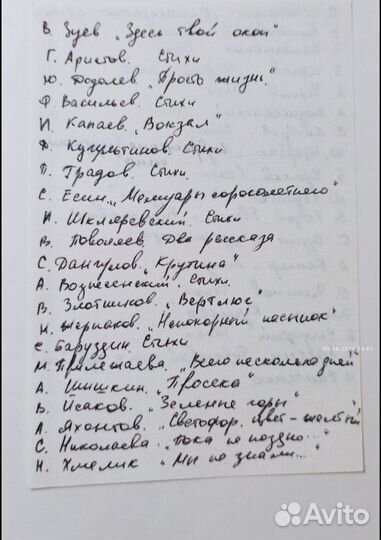 В. Зуев „Здесь твой окоп"
Г. Аристов. Стихи
Ю. Додолев „Просто жизнь."
Ф. Васильев. Стихи
И. Капаев. „Вокзал"
Д. Кугультинов. Стихи
П. Градов. Стихи.
С. Есин. „Мемуары сорокалетнего"
И. Шкляревский. Стихи
В. Поволяев. Два рассказа
С. Дангулов. „Крутина"
А. Вознесенский. Стихи.
В. Злотников. „Вертлюг"
Н. Шерпаков. „Непокорный наспынок"
С. Баруздин. Стихи
М. Прилежаева. „Всего несколько дней"
А. Шишкин. „Просека"
В. Исаков. „Зеленые горы"
А. Яхонтов. „Светофор. Цвет - желтый
С. Николаева. „Пока не поздно..."
Н. Хмелик „Мы не знали..."
Avito